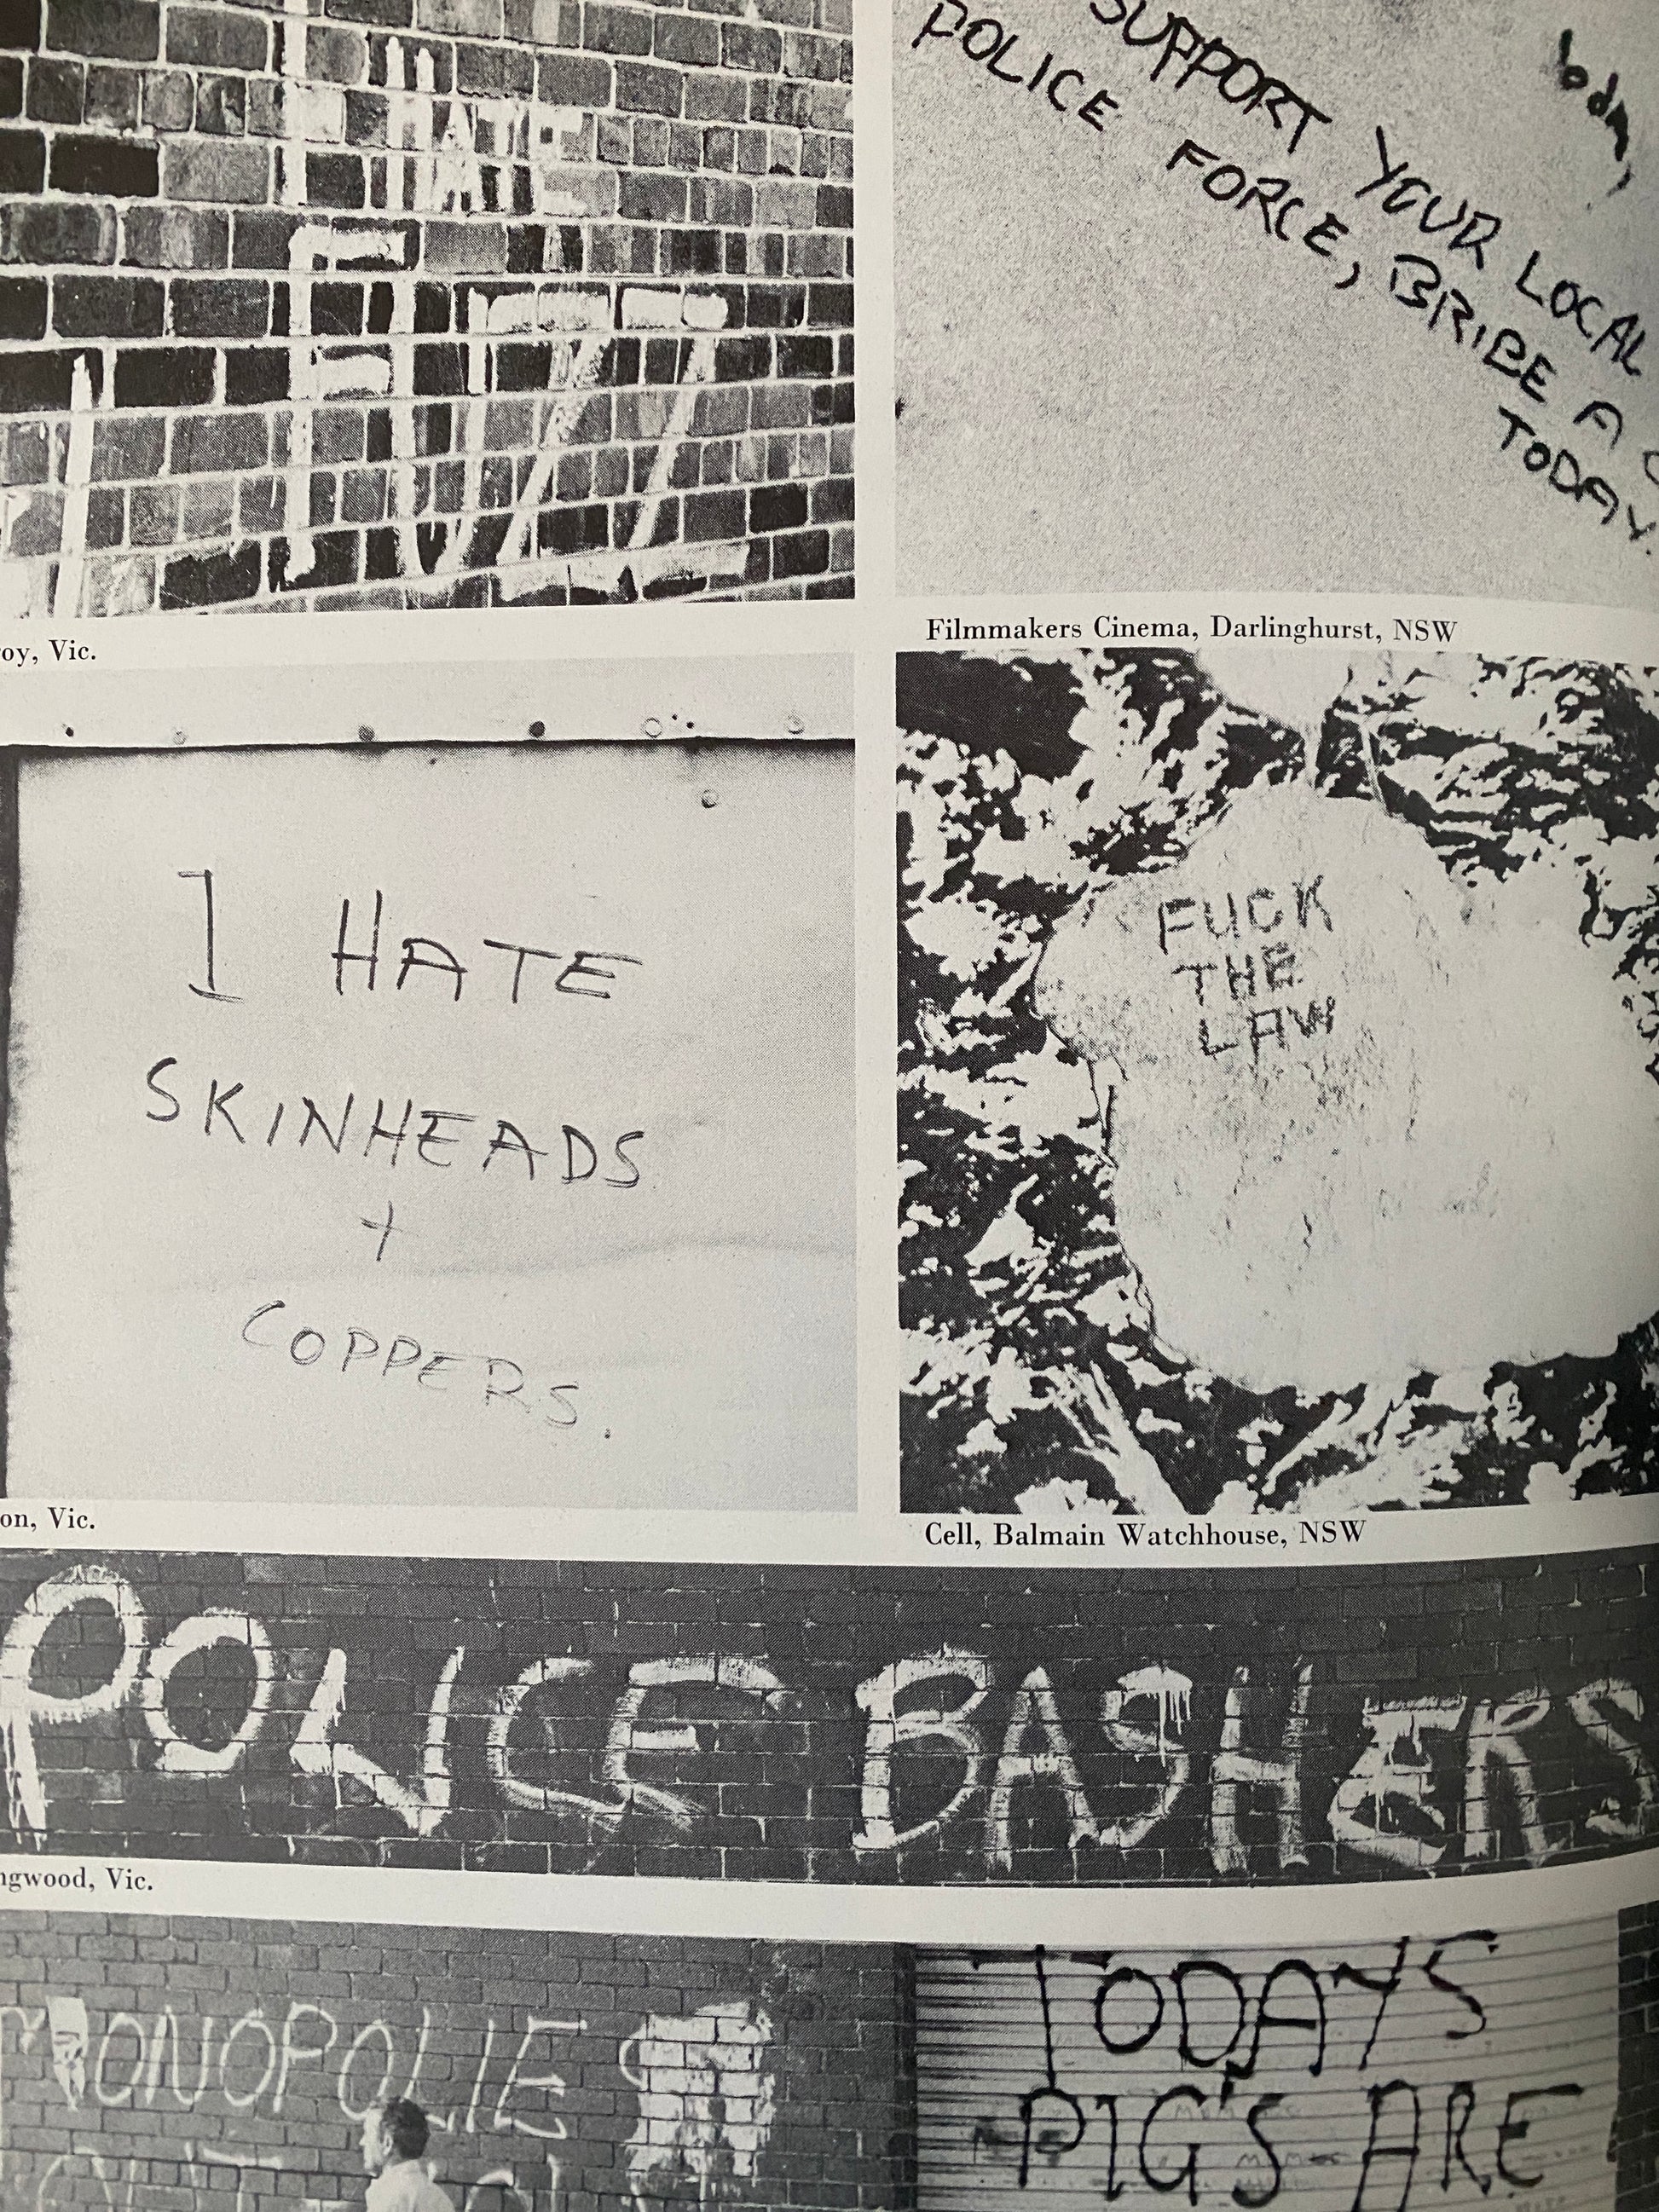 SUPPORT YOUR LOCAL
POLICE FORCE, BRIBE A
TODAY.
oy, Vic.
Filmmakers Cinema, Darlinghurst, NSW
I HATE
SKINHEADS
+
COPPERS.
FUCK
THE
LAW
on, Vic.
Cell, Balmain Watchhouse, NSW
POLICE BASHERS
ngwood, Vic.
MONOPOLIE
TODAYS
PIG'S ARE